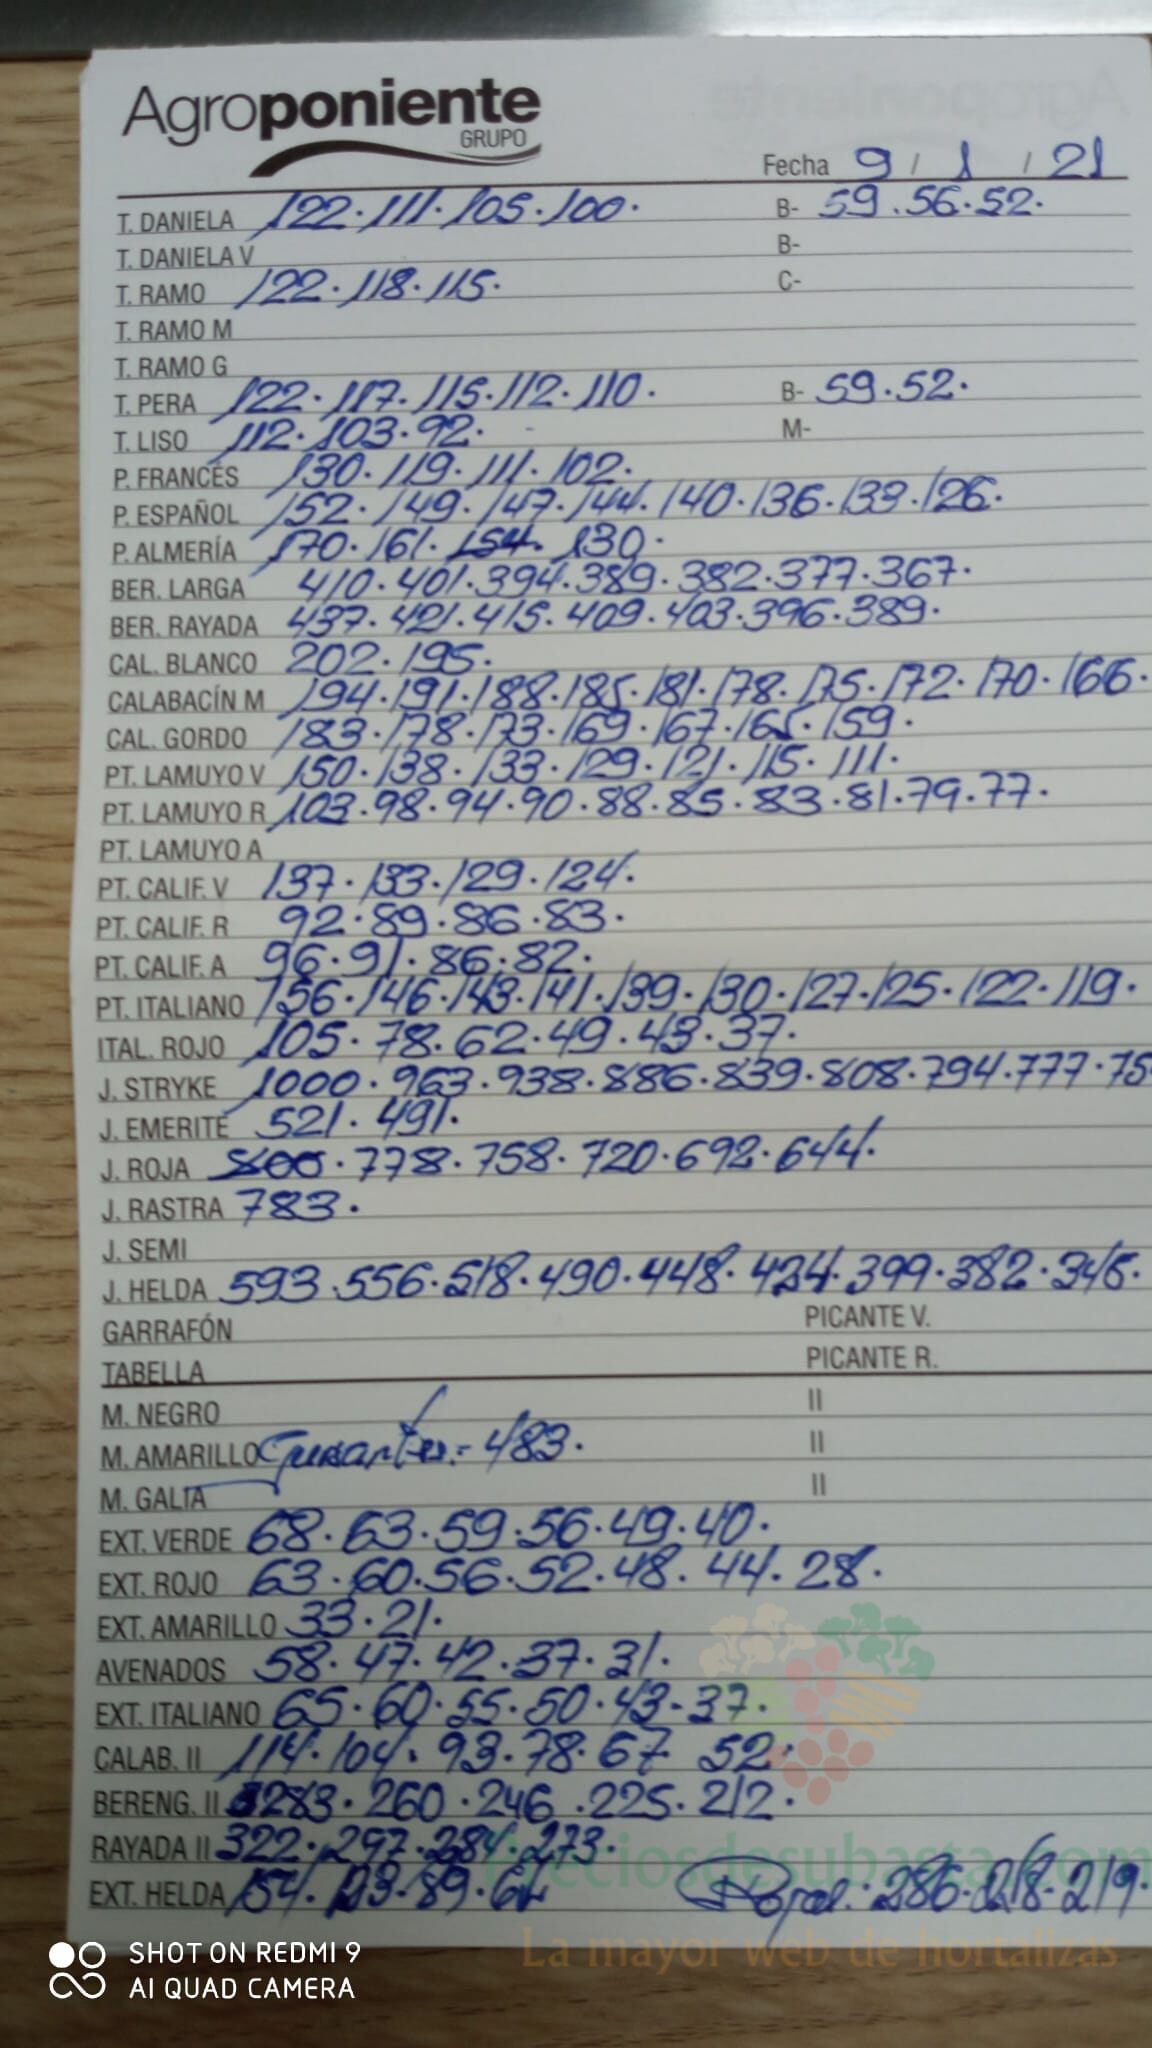 Agroponiente
GRUPO
Fecha 9 / 1 / 21
T. DANIELA 122. 111. 105. 100. B- 59. 56. 52.
T. DANIELA V B-
T. RAMO 122. 118. 115. C-
T. RAMO M
T. RAMO G
T. PERA 122. 117. 115. 112. 110. B- 59. 52.
T. LISO 112. 103. 92. M-
P. FRANCÉS 130. 119. 111. 102.
P. ESPAÑOL 152. 149. 147. 144. 140. 136. 133. 126.
P. ALMERÍA 170. 161. 154. 130.
BER. LARGA 410. 401. 394. 389. 382. 377. 367.
BER. RAYADA 437. 421. 415. 409. 403. 396. 389.
CAL. BLANCO 202. 195.
CALABACÍN M 194. 191. 188. 185. 181. 178. 175. 172. 170. 166.
CAL. GORDO 183. 178. 173. 169. 167. 165. 159.
PT. LAMUYO V 150. 138. 133. 129. 121. 115. 111.
PT. LAMUYO R 103. 98. 94. 90. 88. 85. 83. 81. 79. 77.
PT. LAMUYO A
PT. CALIF. V 137. 133. 129. 124.
PT. CALIF. R 92. 89. 86. 83.
PT. CALIF. A 96. 91. 86. 82.
PT. ITALIANO 156. 146. 143. 141. 139. 130. 127. 125. 122. 119.
ITAL. ROJO 105. 78. 62. 49. 43. 37.
J. STRYKE 1000. 963. 938. 886. 839. 808. 794. 777. 75
J. EMERITE 521. 491.
J. ROJA 800. 778. 758. 720. 692. 644.
J. RASTRA 783.
J. SEMI
J. HELDA 593. 556. 518. 490. 448. 424. 399. 382. 345.
GARRAFÓN PICANTE V.
TABELLA PICANTE R.
M. NEGRO II
M. AMARILLO Guisantes.- 483. II
M. GALIA II
EXT. VERDE 68. 63. 59. 56. 49. 40.
EXT. ROJO 63. 60. 56. 52. 48. 44. 28.
EXT. AMARILLO 33. 21.
AVENADOS 58. 47. 42. 37. 31.
EXT. ITALIANO 65. 60. 55. 50. 43- 37.
CALAB. II 114. 104. 93. 78. 67 52.
BERENG. II 283. 260. 246. 225. 212.
RAYADA II 322. 297. 284. 273.
preciosdesubasta.com
EXT. HELDA 154. 123. 89. 62 286. 218. 219.
La mayor web de hortalizas
SHOT ON REDMI 9
AI QUAD CAMERA